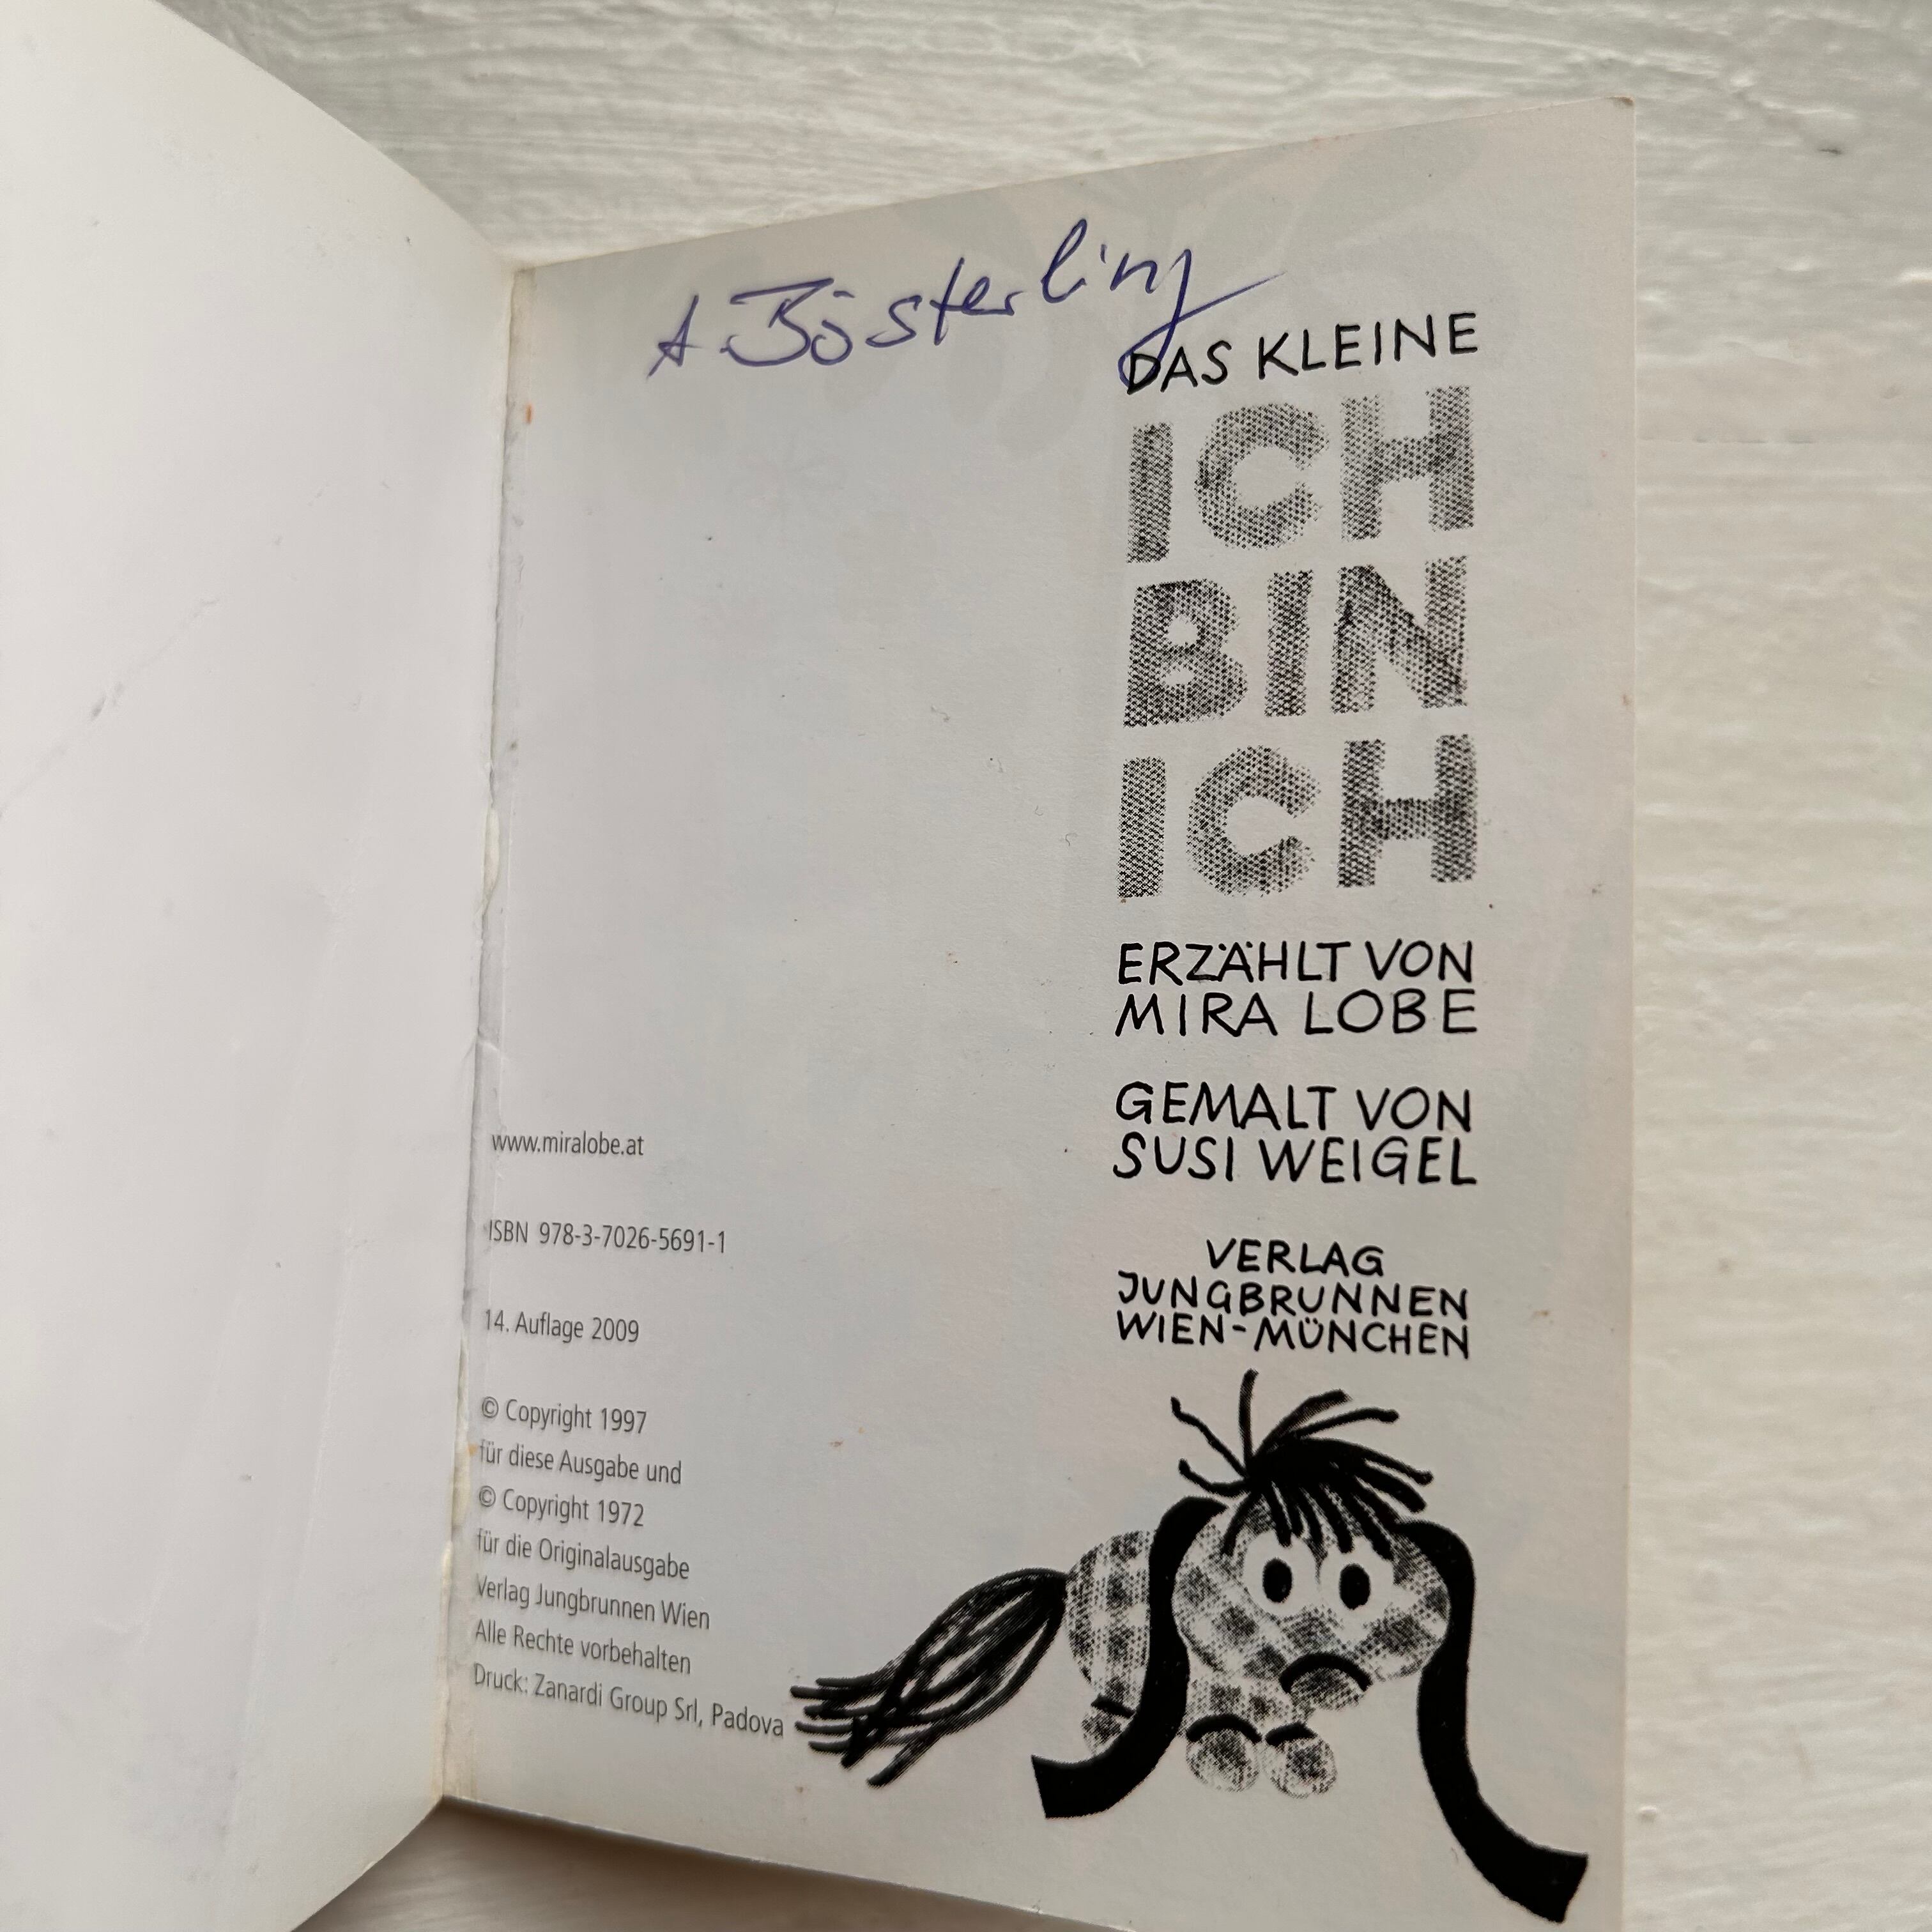 A. Bösterling
DAS KLEINE
ICH
BIN
ICH
ERZÄHLT VON
MIRA LOBE
GEMALT VON
SUSI WEIGEL
VERLAG
JUNGBRUNNEN
WIEN-MÜNCHEN
www.miralobe.at
ISBN 978-3-7026-5691-1
14. Auflage 2009
© Copyright 1997
für diese Ausgabe und
© Copyright 1972
für die Originalausgabe
Verlag Jungbrunnen Wien
Alle Rechte vorbehalten
Druck: Zanardi Group Srl, Padova